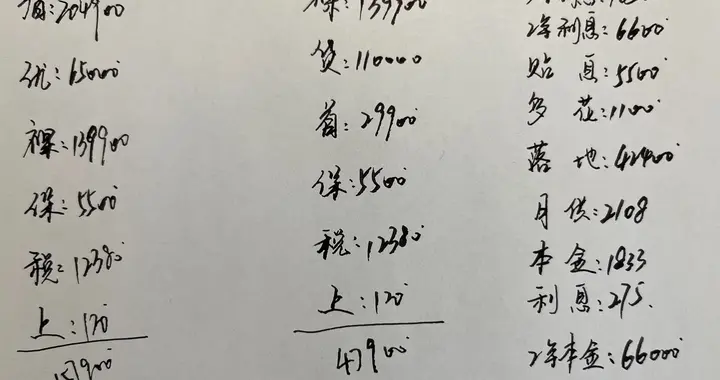 指:204900
优:65000
裸:139900
保:5500
税:12380
上:120
157900
裸:139900
贷:110000
首:29900
保:5500
税:12380
上:120
47900
2年利息:6600
贴息:5500
多花:1100
落地:42400
月供:2108
本金:1833
利息:275.
2年本金:66000